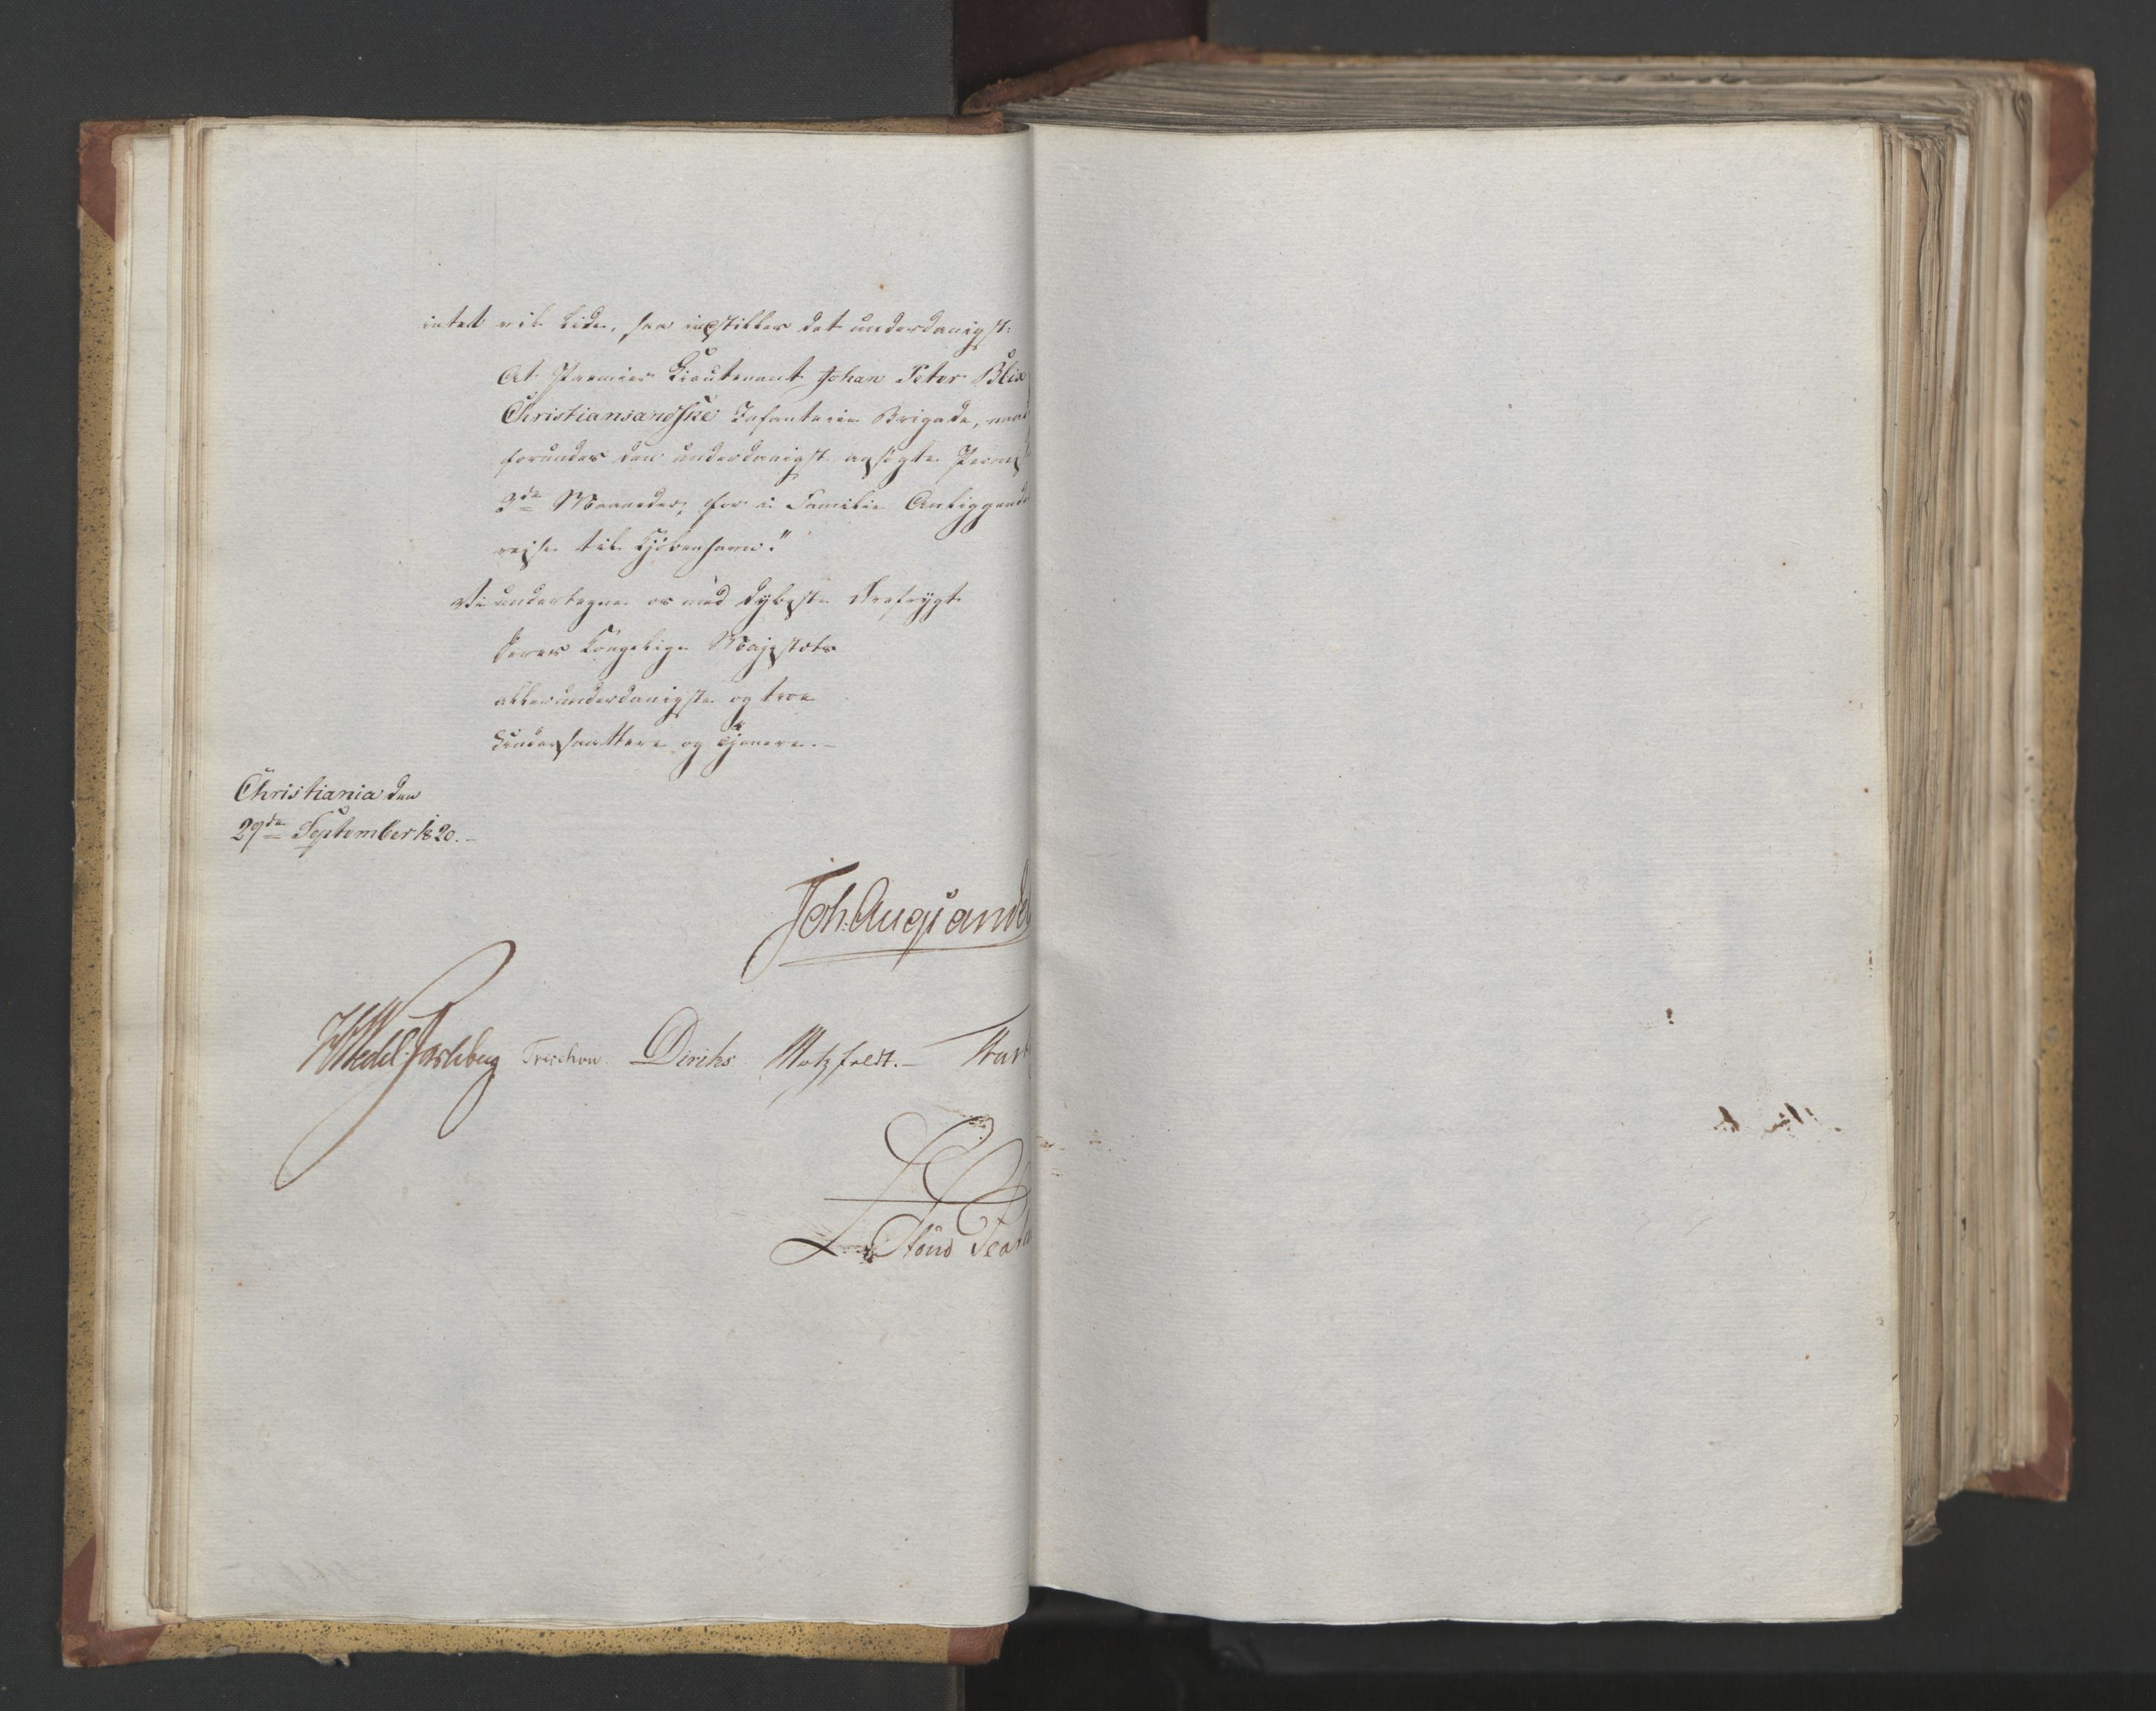 intet vil lide, saa indstilles det underdanigst:
At Premier Lieutenant Johan Peter Blix
Christiansandske Infanterie Brigade, naad
forundes den underdanigst ansøgte Permis
3de Maaneder, for i Familie Anliggende
reise til Kjøbenhavn."
Vi undertegne os med dybeste Ærefrygt
Deres Kongelige Majestæts
allerunderdanigste og troe
Undersaattere og Tjenere.-
Christiania den
29de September 1820.-
Joh. Aug Sande
HWedel Jarlsberg Treschow Diriks Motzfeldt.-